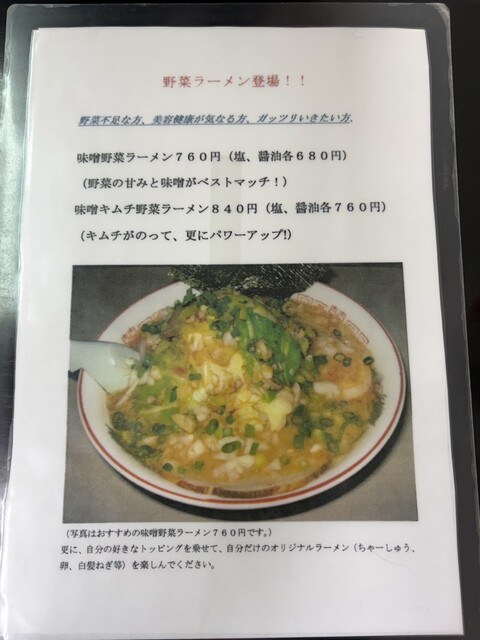 野菜ラーメン登場！！
野菜不足な方、美容健康が気なる方、ガッツリいきたい方.
味噌野菜ラーメン７６０円（塩、醤油各６８０円）
（野菜の甘みと味噌がベストマッチ！）
味噌キムチ野菜ラーメン８４０円（塩、醤油各７６０円）
（キムチがのって、更にパワーアップ!）
（写真はおすすめの味噌野菜ラーメン７６０円です。）
更に、自分の好きなトッピングを乗せて、自分だけのオリジナルラーメン（ちゃーしゅう、
卵、白髪ねぎ等）を楽しんでください。